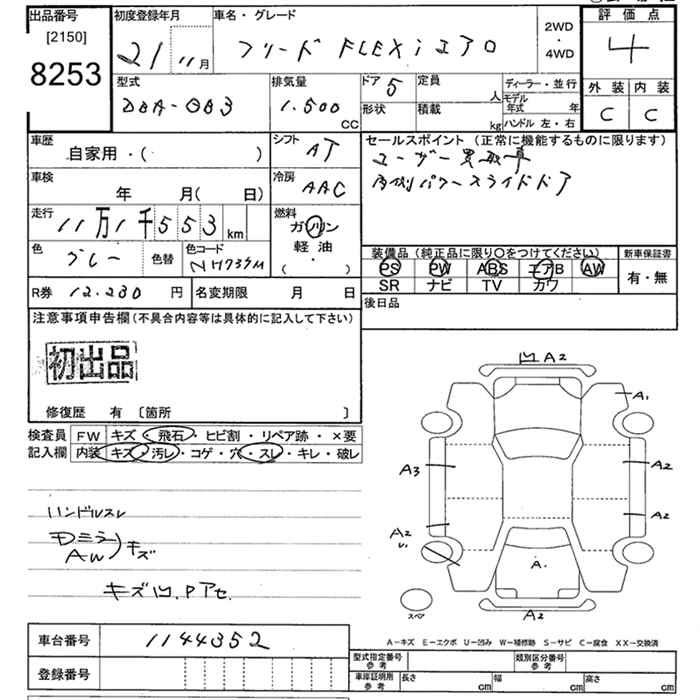 出品番号
[2150]
8253
初度登録年月
21 11月
車名・グレード
フリード FLEXiエアロ
2WD
・
4WD
評価点
4
外装 内装
C C
型式
DBA-GB3
排気量
1.500
cc
ドア 5
形状
定員 人
積載 kg
ディーラー・並行
モデル
年式 年
ハンドル 左・右
車歴
自家用・( )
シフト
AT
車検
年 月( 日)
冷房
AAC
走行
11万1千553km
燃料
ガソリン
軽油
( ・ )
色
グレー
色替
色コード
NH737M
R券 12.230 円
名変期限 月 日
セールスポイント (正常に機能するものに限ります)
ユーザー買取車
両側パワースライドドア
装備品 (純正品に限り○をつけてください)
PS PW ABS エアB AW
SR ナビ TV カワ
新車保証書
有・無
後日品
注意事項申告欄(不具合内容等は具体的に記入して下さい)
初出品
修復歴 有 〔箇所 〕
検査員
記入欄
FW キズ・飛石・ヒビ割・リペア跡・×要
内装 キズ・汚レ・コゲ・穴・スレ・キレ・破レ
ハンドルスレ
Dミラー
AW
キズ
キズ凹.Pアセ.
凹A2
A1
A3
A2
A2
A2
U1
A.
スペア
A2
A-キズ E-エクボ U-凹み W-補修跡 S-サビ C-腐食 XX-交換済
車台番号
1144352
登録番号
型式指定番号
参考
類別区分番号
参考
車庫証明用
参考
長さ cm
幅 cm
高さ cm